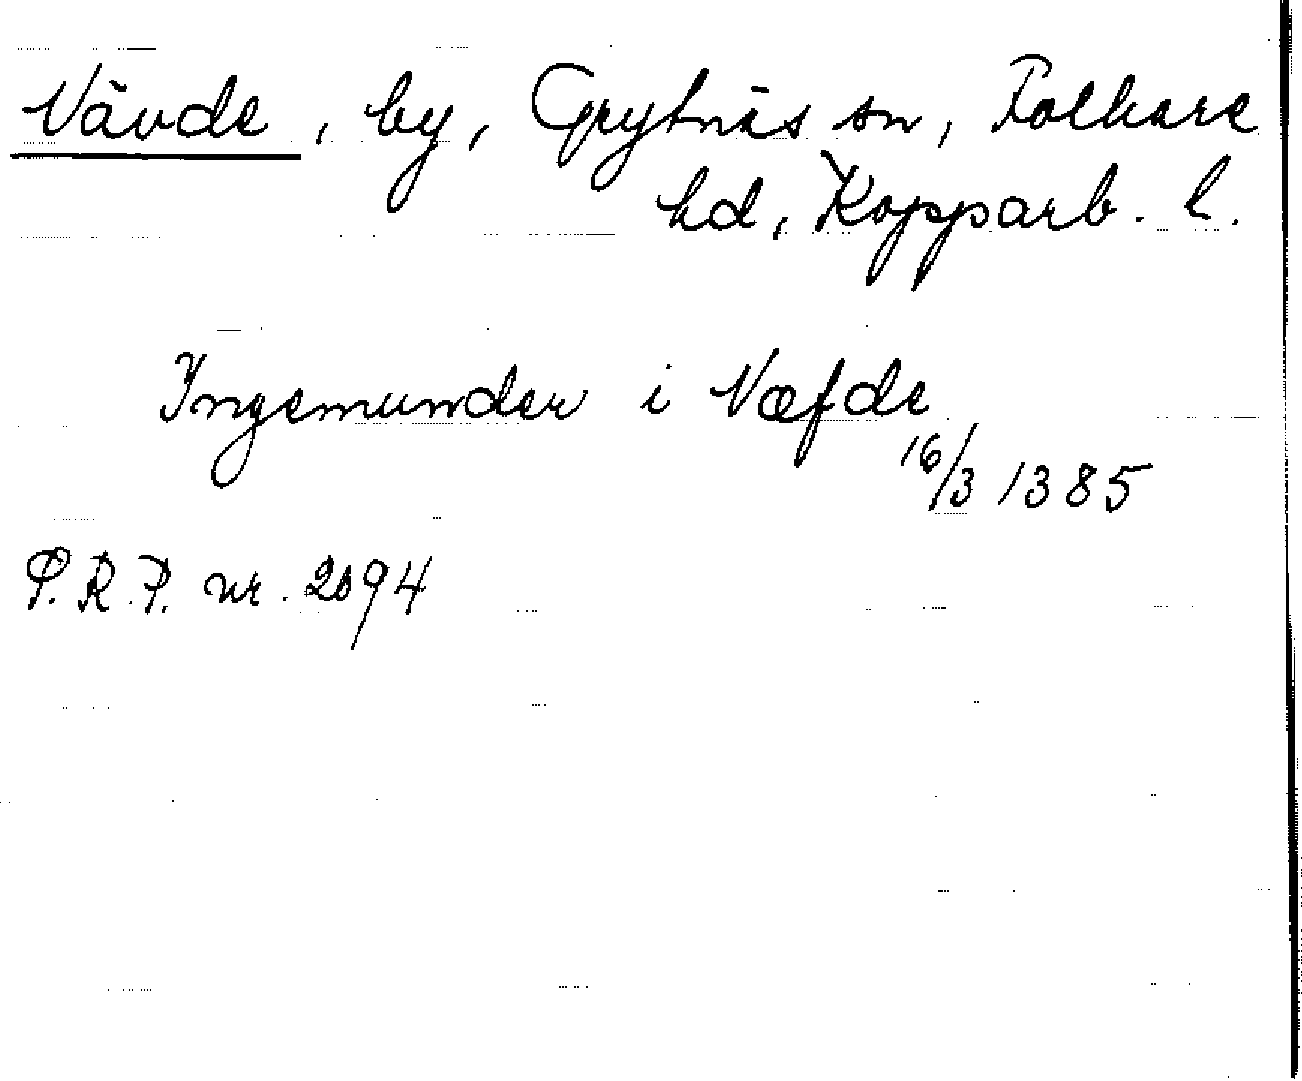 Nävde, by, Grytnäs sn, Folkare
hd, Kopparb. l.
Ingemunder i Næfde
16/3 1385
P.R.P. nr. 2094